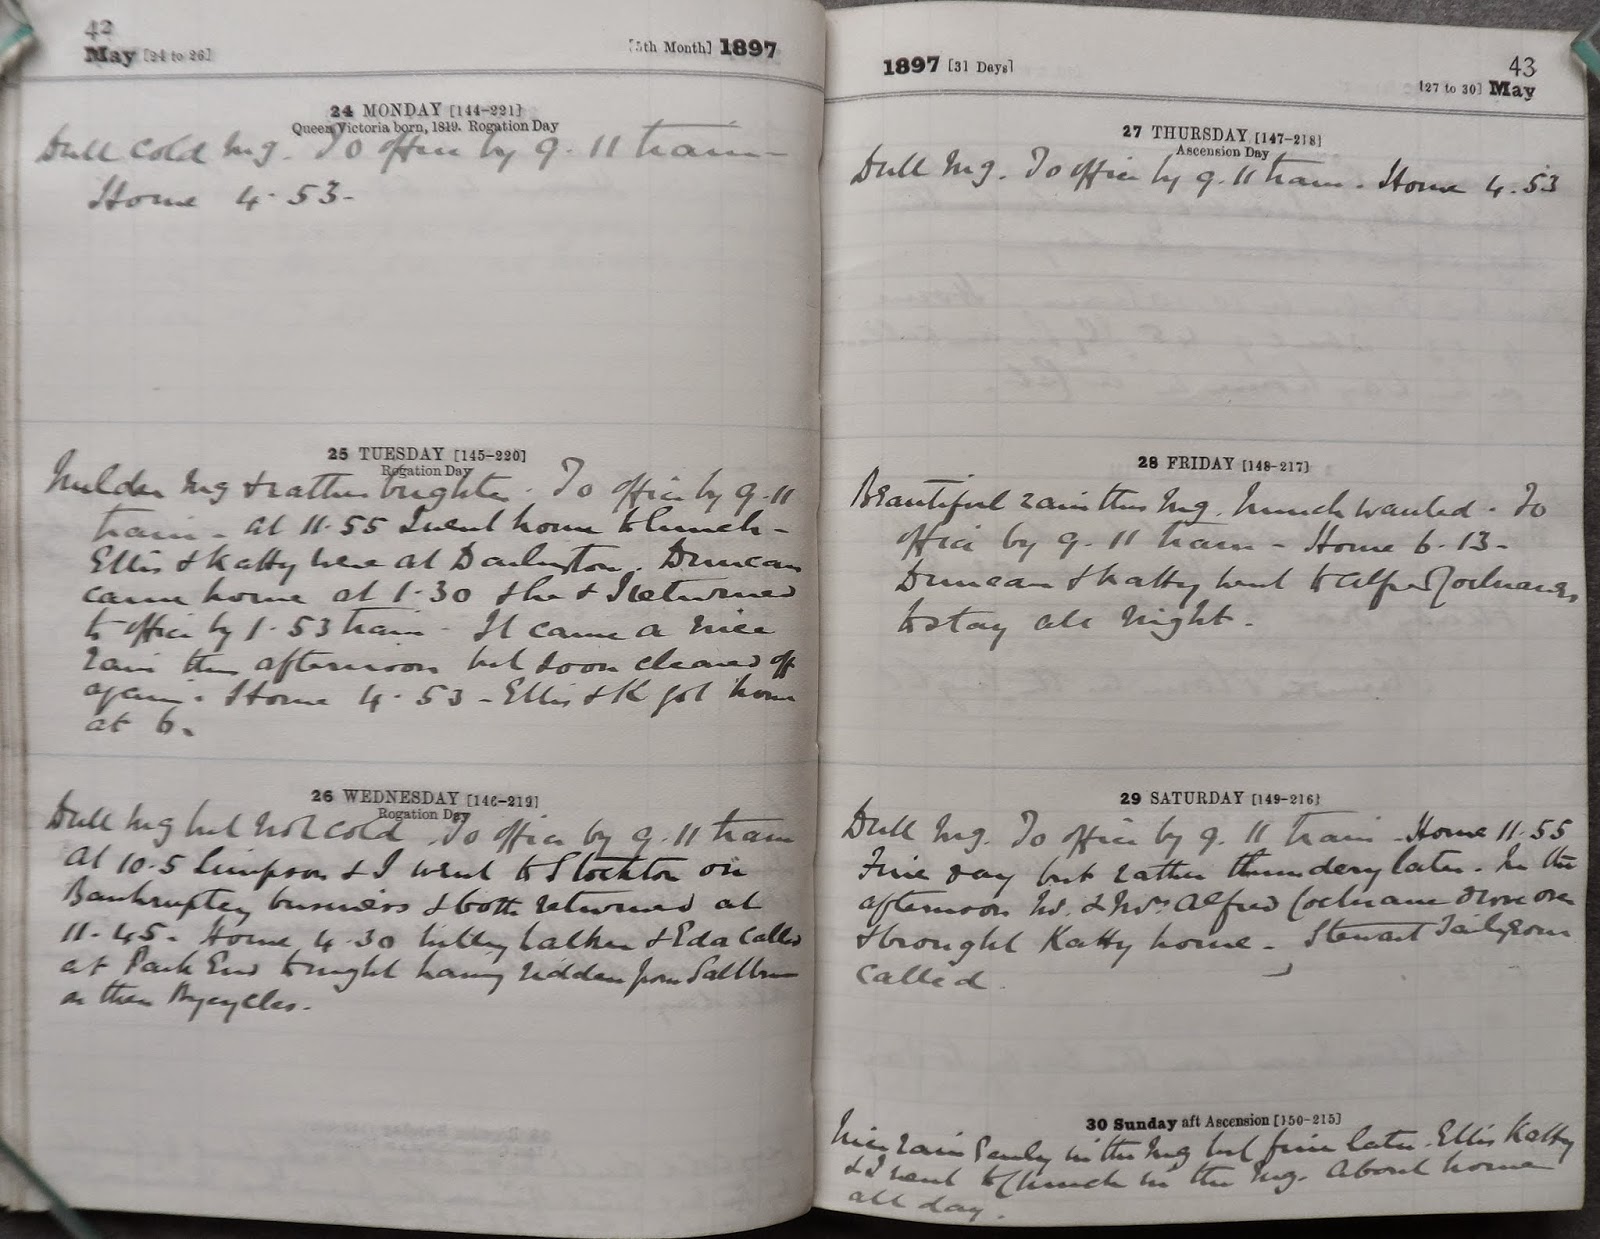 42
May [24 to 26]
[5th Month] 1897
24 MONDAY [144-221]
Queen Victoria born, 1819. Rogation Day
Dull cold Mg. To office by 9.11 train-
Home 4.53-
25 TUESDAY [145-220]
Rogation Day
Milder Mg & rather brighter. To office by 9.11
train- at 11.55 I went home to lunch-
Ellis & Katty were at Darlington. Duncan
came home at 1.30 & he & I returned
to office by 1.53 train- It came a nice
rain this afternoon but soon cleared off
again. Home 4.53-Ellis & K got home
at 6.
26 WEDNESDAY [146-219]
Rogation Day
Dull Mg but not cold. To office by 9.11 train
At 10.5 Simpson & I went to Stockton on
Bankruptcy business & both returned at
11.45. Home 4.30 & Eda called
at Park End tonight having ridden from Saltburn
on their Bycycles.
1897 [31 Days]
43
[27 to 30] May
27 THURSDAY [147-218]
Ascension Day
Dull Mg. To office by 9.11 train. Home 4.53
28 FRIDAY [148-217]
Beautiful rain this Mg. Much wanted. To
office by 9.11 train- Home 6.13-
Duncan & Katty went to Alfred Cochranes
to stay all night.
29 SATURDAY [149-216]
Dull Mg. To office by 9.11 train-Home 11.55
Fine day but rather thundery later. In the
afternoon Mr. & Mrs Alfred Cochrane drove over
& brought Katty home- Stewart
called.
30 Sunday aft Ascension [150-215]
Nice rain Early in the Mg but fine later. Ellis Katty
& I went to Church in the Mg. About home
all day.